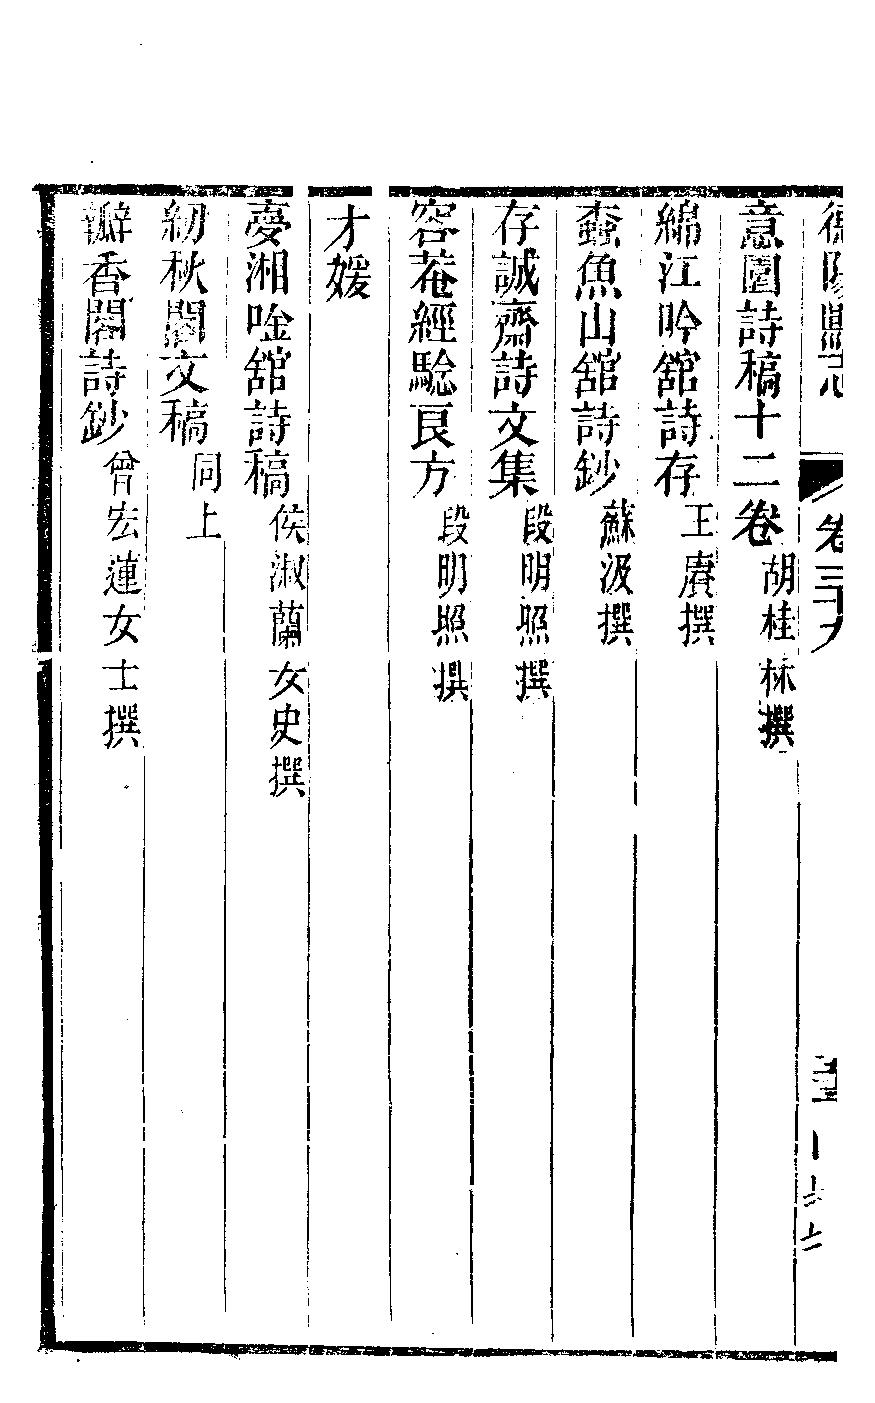 德陽縣志 卷三十九
意園詩稿十二卷 胡桂林撰
綿江吟舘詩存 王賡撰
蠢魚山舘詩鈔 蘇汲撰
存誠齋詩文集 段明照撰
容菴經騐良方 段明照撰
才媛
夢湘唫舘詩稿 侯淑蘭女史撰
紉秋閣文稿 同上
瓣香閣詩鈔 曾宏蓮女士撰